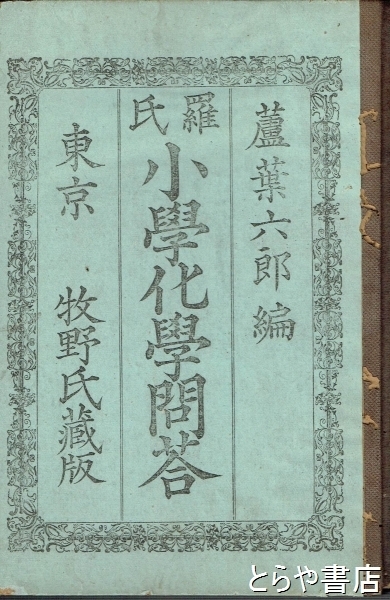 蘆葉六郎編
羅氏
小學化學問荅
東京 牧野氏藏版
とらや書店